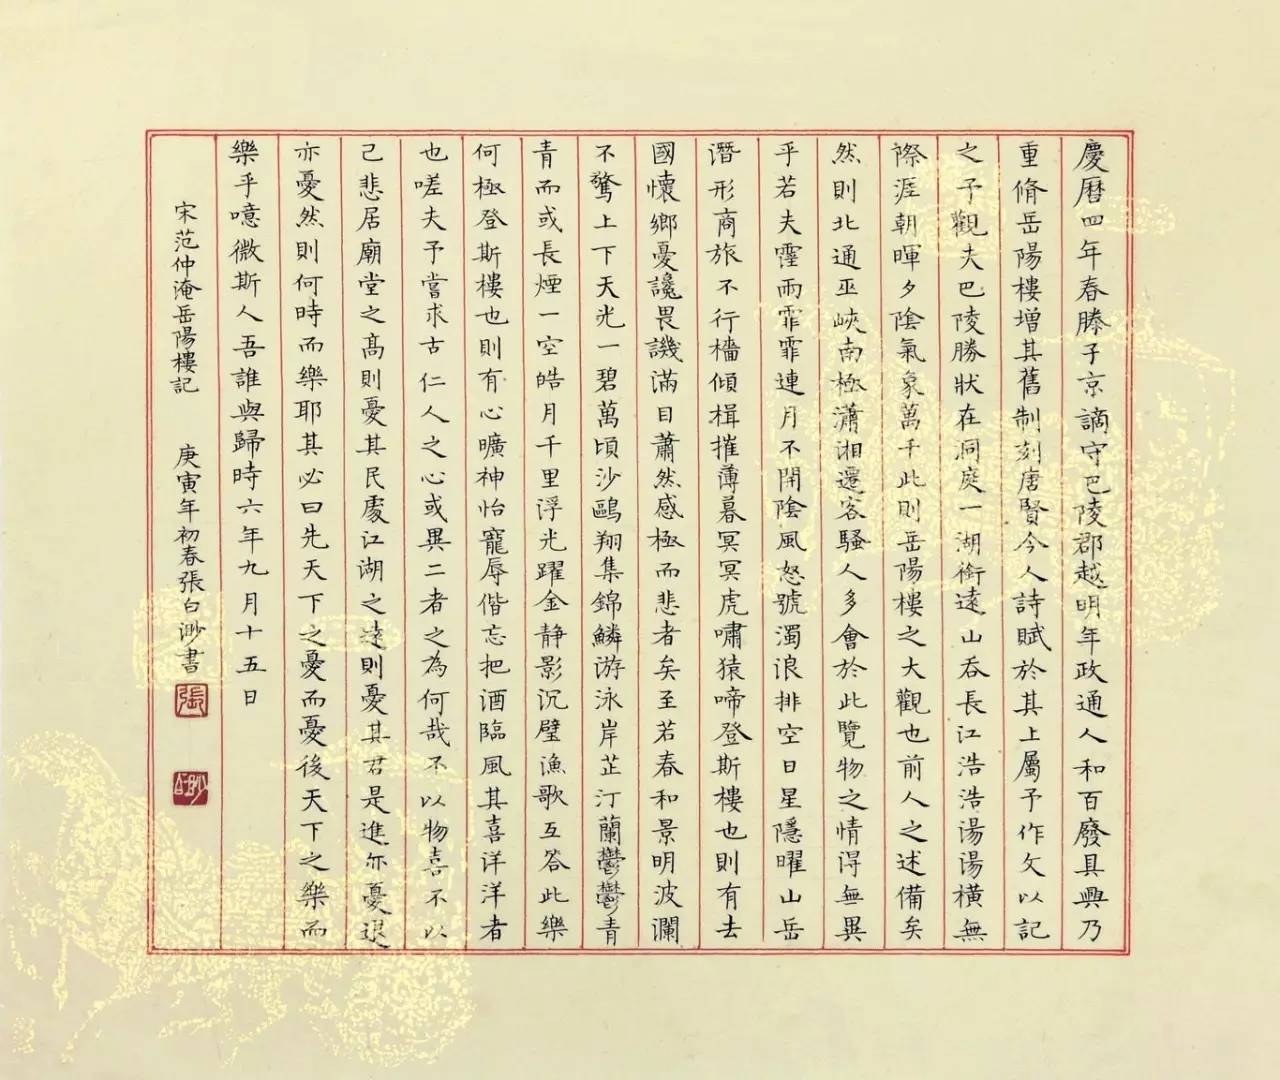 慶曆四年春滕子京謫守巴陵郡越明年政通人和百廢具興乃
重脩岳陽樓增其舊制刻唐賢今人詩賦於其上屬予作文以記
之予觀夫巴陵勝狀在洞庭一湖銜遠山吞長江浩浩湯湯橫無
際涯朝暉夕陰氣象萬千此則岳陽樓之大觀也前人之述備矣
然則北通巫峽南極瀟湘遷客騷人多會於此覽物之情得無異
乎若夫霪雨霏霏連月不開陰風怒號濁浪排空日星隱曜山岳
潛形商旅不行檣傾楫摧薄暮冥冥虎嘯猿啼登斯樓也則有去
國懷鄉憂讒畏譏滿目蕭然感極而悲者矣至若春和景明波瀾
不驚上下天光一碧萬頃沙鷗翔集錦鱗游泳岸芷汀蘭鬱鬱青
青而或長煙一空皓月千里浮光躍金静影沉璧漁歌互答此樂
何極登斯樓也則有心曠神怡寵辱偕忘把酒臨風其喜洋洋者
也嗟夫予嘗求古仁人之心或異二者之為何哉不以物喜不以
己悲居廟堂之高則憂其民處江湖之遠則憂其君是進亦憂退
亦憂然則何時而樂耶其必曰先天下之憂而憂後天下之樂而
樂乎噫微斯人吾誰與歸時六年九月十五日
宋范仲淹岳陽樓記 庚寅年初春張白渺書
張
白渺